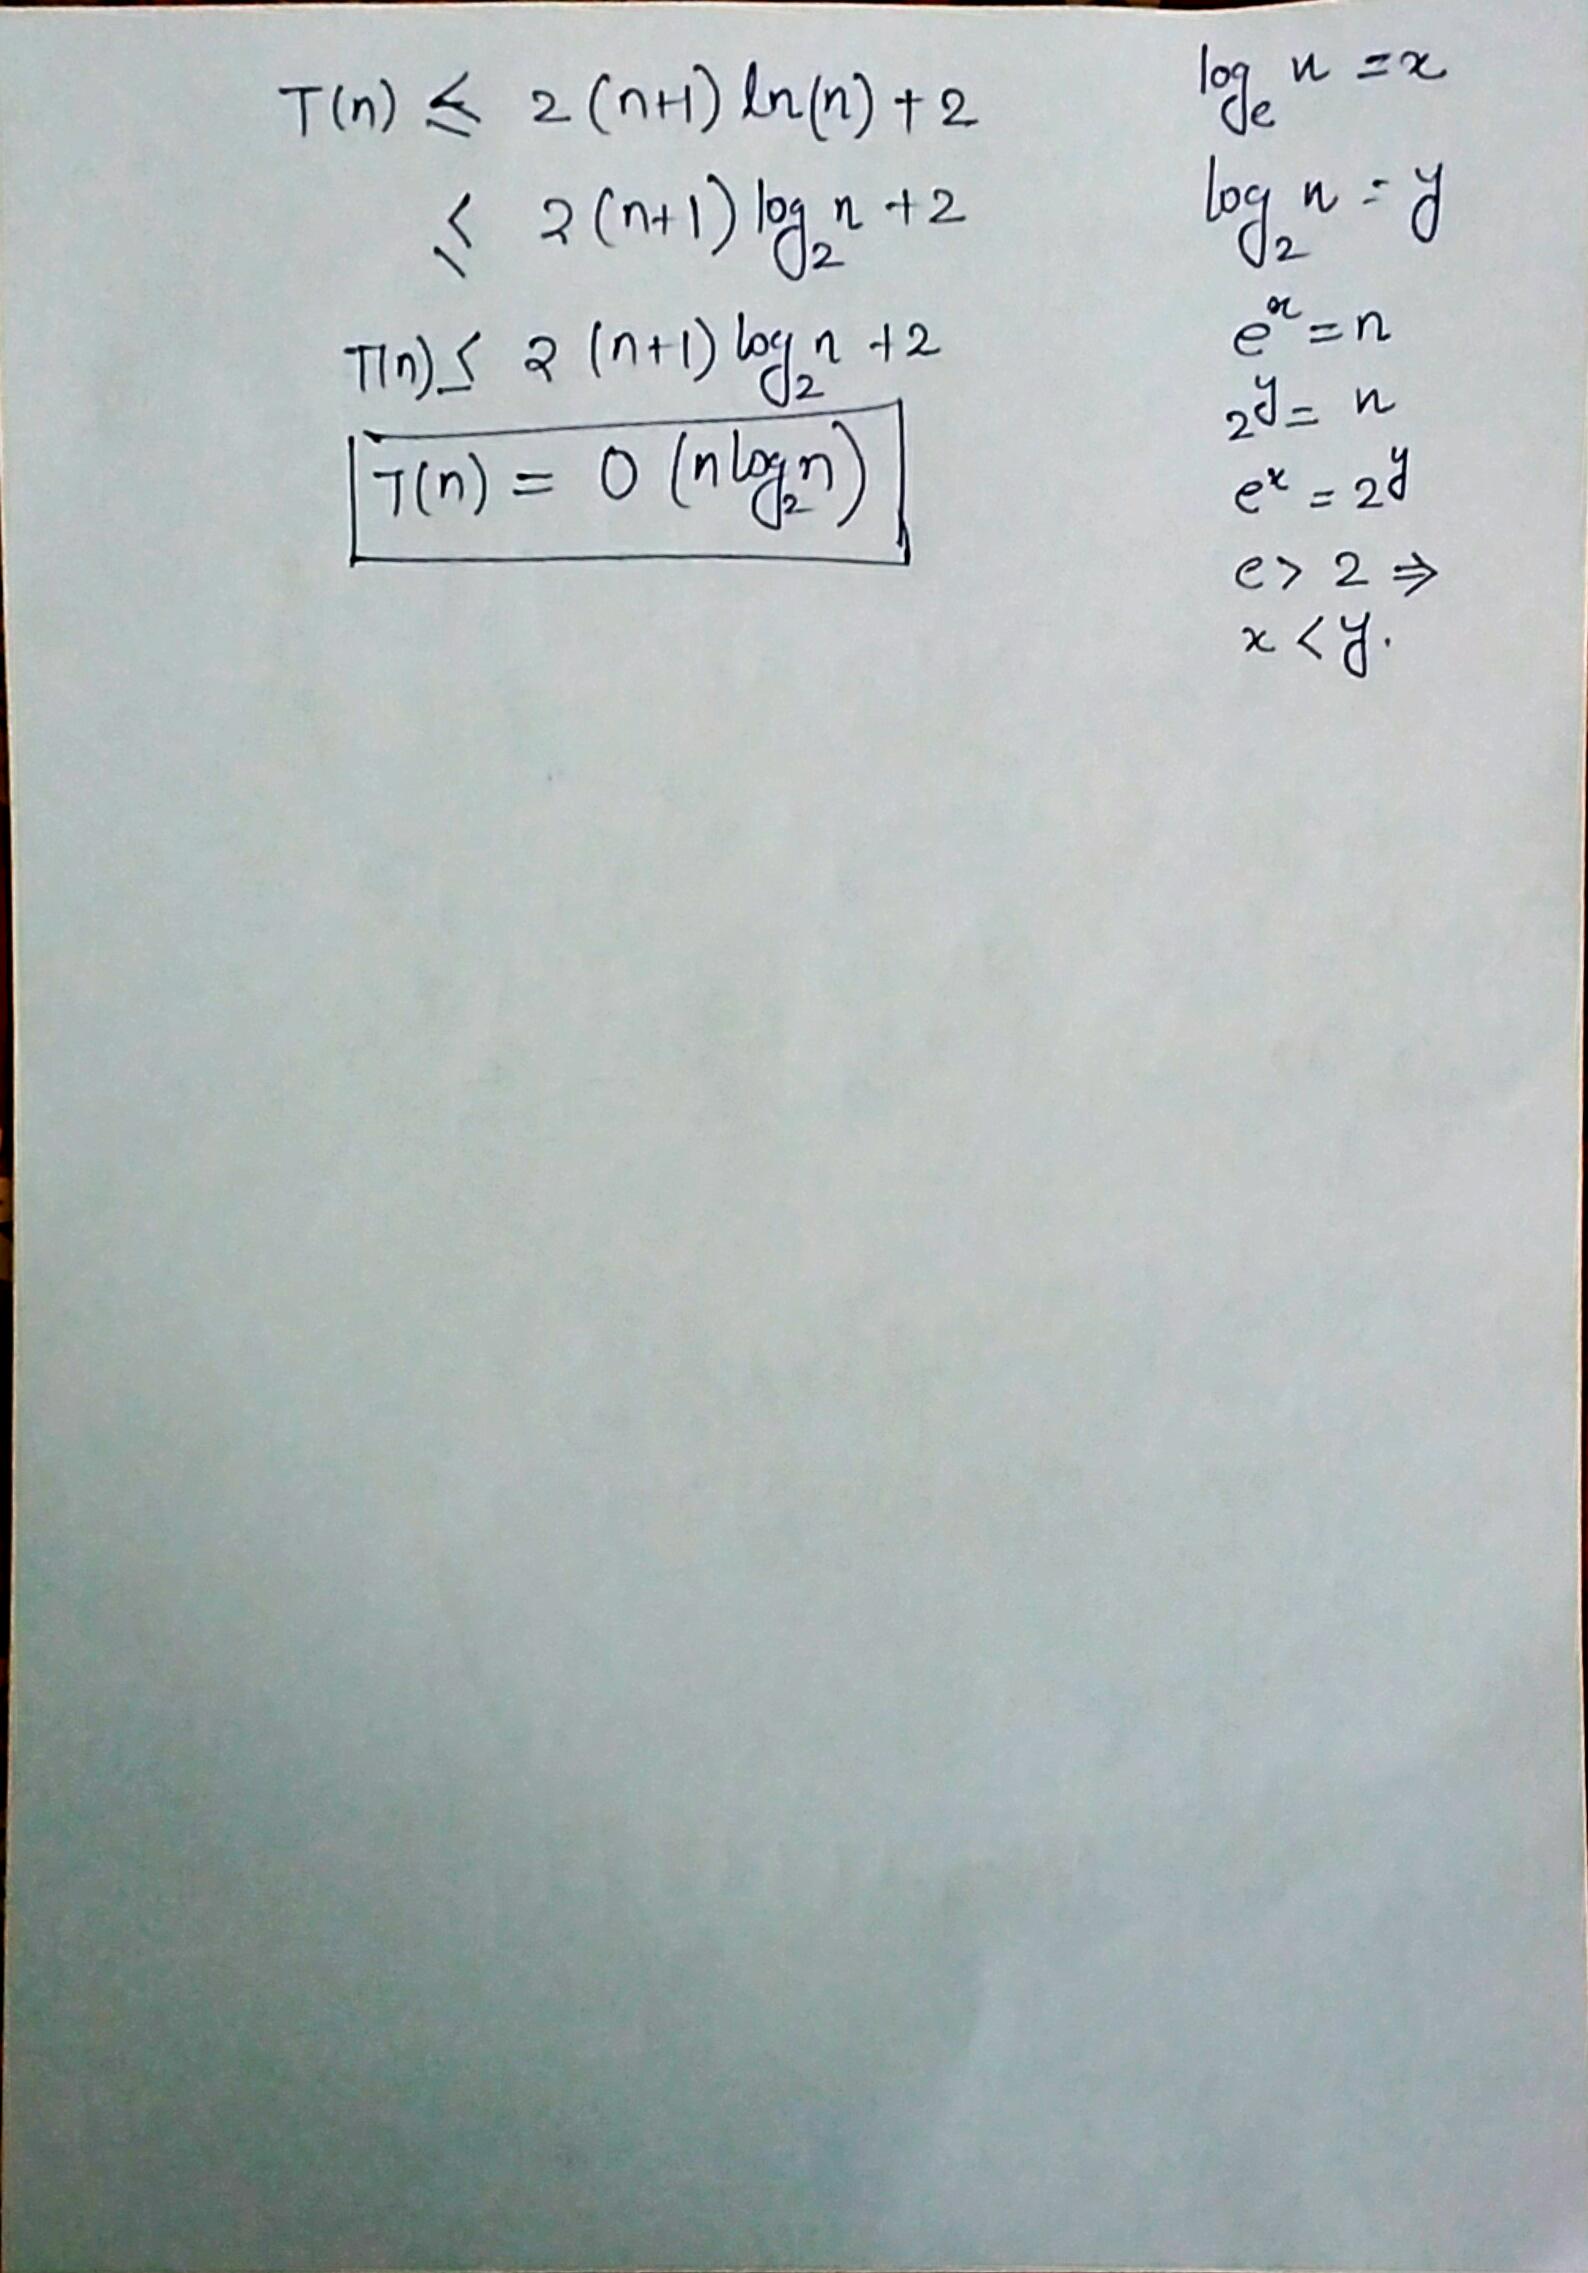 T(n) ≤ 2(n+1) ln(n) + 2
≤ 2(n+1) log₂n + 2
T(n) ≤ 2(n+1) log₂n + 2
T(n) = O(n log₂n)
logₑ n = x
log₂ n = y
eˣ = n
2ʸ = n
eˣ = 2ʸ
e > 2 ⇒
x < y.